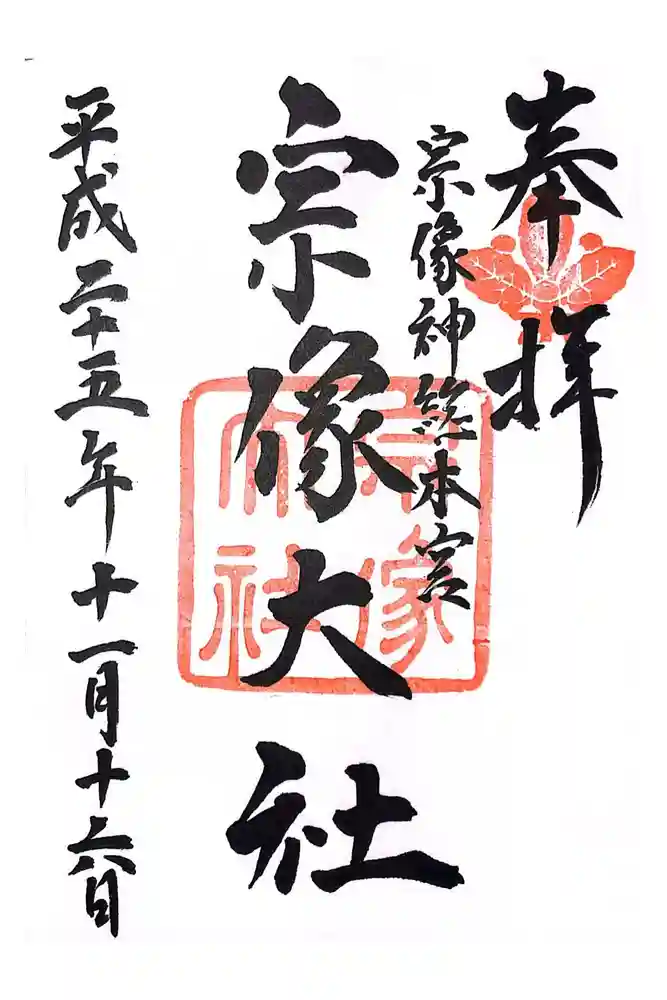 奉拝
宗像神総本宮
宗像大社
平成二十五年十一月十六日
宗像
大社